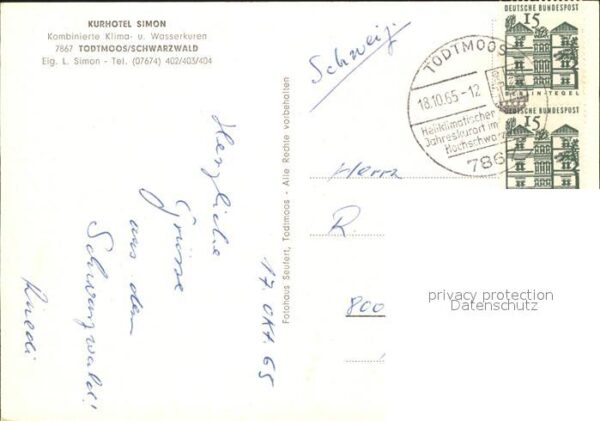 KURHOTEL SIMON
Kombinierte Klima- u. Wasserkuren
7867 TODTMOOS/SCHWARZWALD
Eig. L. Simon - Tel. (07674) 402/403/404
Herzliche
Grüsse
aus dem
Schwarzwald!
Ruedi
17. Okt. 65
Fotohaus Seufert, Todtmoos - Alle Rechte vorbehalten
Schweiz.
TODTMOOS
18.10.65-12
Heilklimatischer
Jahreskurort im
Hochschwarzw
786
DEUTSCHE BUNDESPOST
15
BERLIN-TEGEL
DEUTSCHE BUNDESPOST
15
Herrn
R.
800
privacy protection
Datenschutz